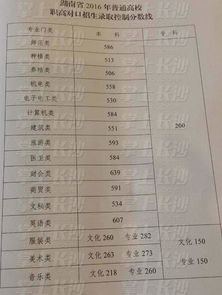 湖南省2016年普通高校
职高对口招生录取控制分数线
专业门类 本 科 专 科
师范类 586
种植类 513
养殖类 506
机电类 558
电子电工类 530
计算机类 584
建筑类 551 200
旅游类 593
医卫类 584
财会类 639
商贸类 591
文秘类 534
英语类 607
服装类 文化 260 专业 282
美术类 文化 263 专业 273 文化 150
音乐类 文化 218 专业 260 专业 150